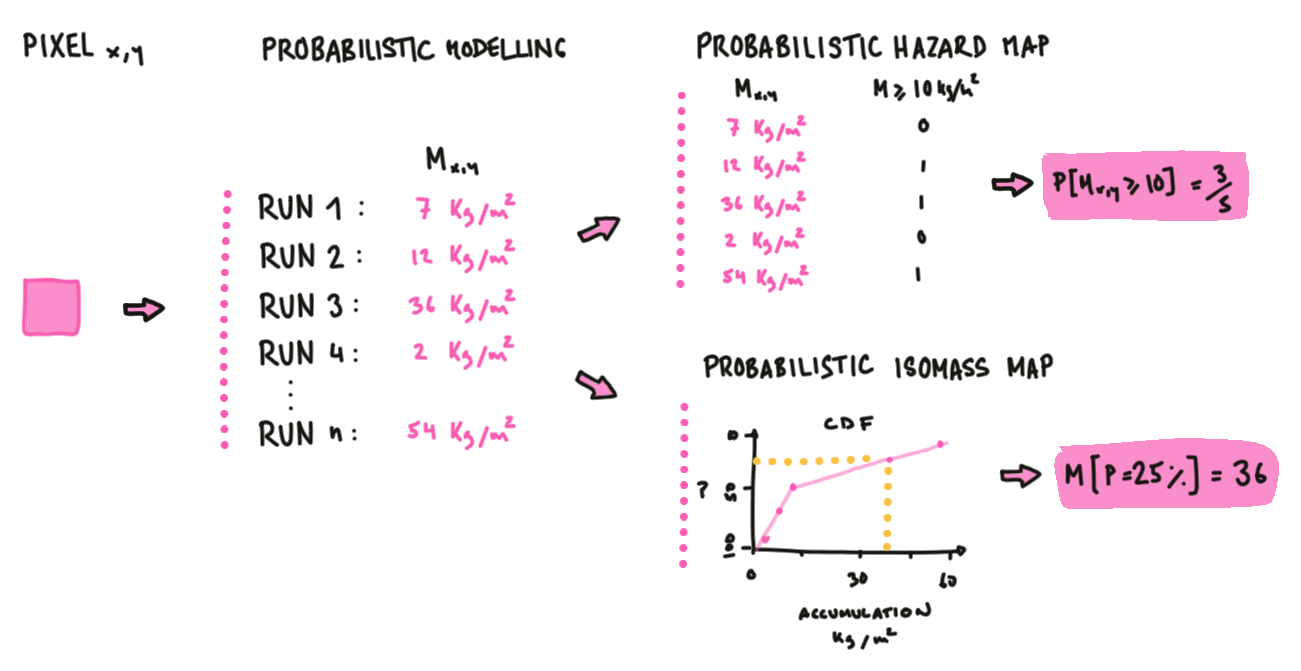 PIXEL x,y
PROBABILISTIC MODELLING
M x,y
RUN 1 : 7 Kg/m²
RUN 2 : 12 Kg/m²
RUN 3 : 36 Kg/m²
RUN 4 : 2 Kg/m²
RUN n : 54 Kg/m²
PROBABILISTIC HAZARD MAP
M x,y M ≥ 10 kg/m²
7 Kg/m² 0
12 Kg/m² 1
36 Kg/m² 1
2 Kg/m² 0
54 Kg/m² 1
P[M x,y ≥ 10] = 3/5
PROBABILISTIC ISOMASS MAP
CDF
0
? 50
100
0 30 60
ACCUMULATION
Kg/m²
M[P=25%] = 36